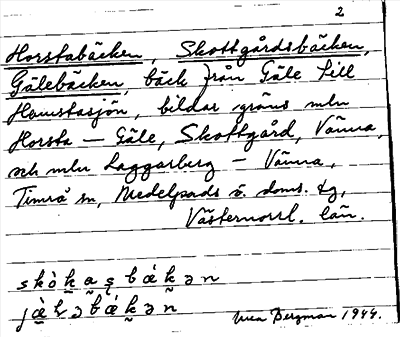 2
Horstabäcken, Skottgårdsbäcken,
Gälebäcken, bäck från Gäle till
Havstasjön, bildar gräns mln
Horsta — Gäle, Skottgård, Vänna,
och mln Laggarberg — Vänna,
Timrå sn, Medelpads ö. doms. tg,
Västernorrl. län.
skòk̬a̬ṣbǽk̬ən
jæ̀ləbǽk̬ən
Bergman 1944.